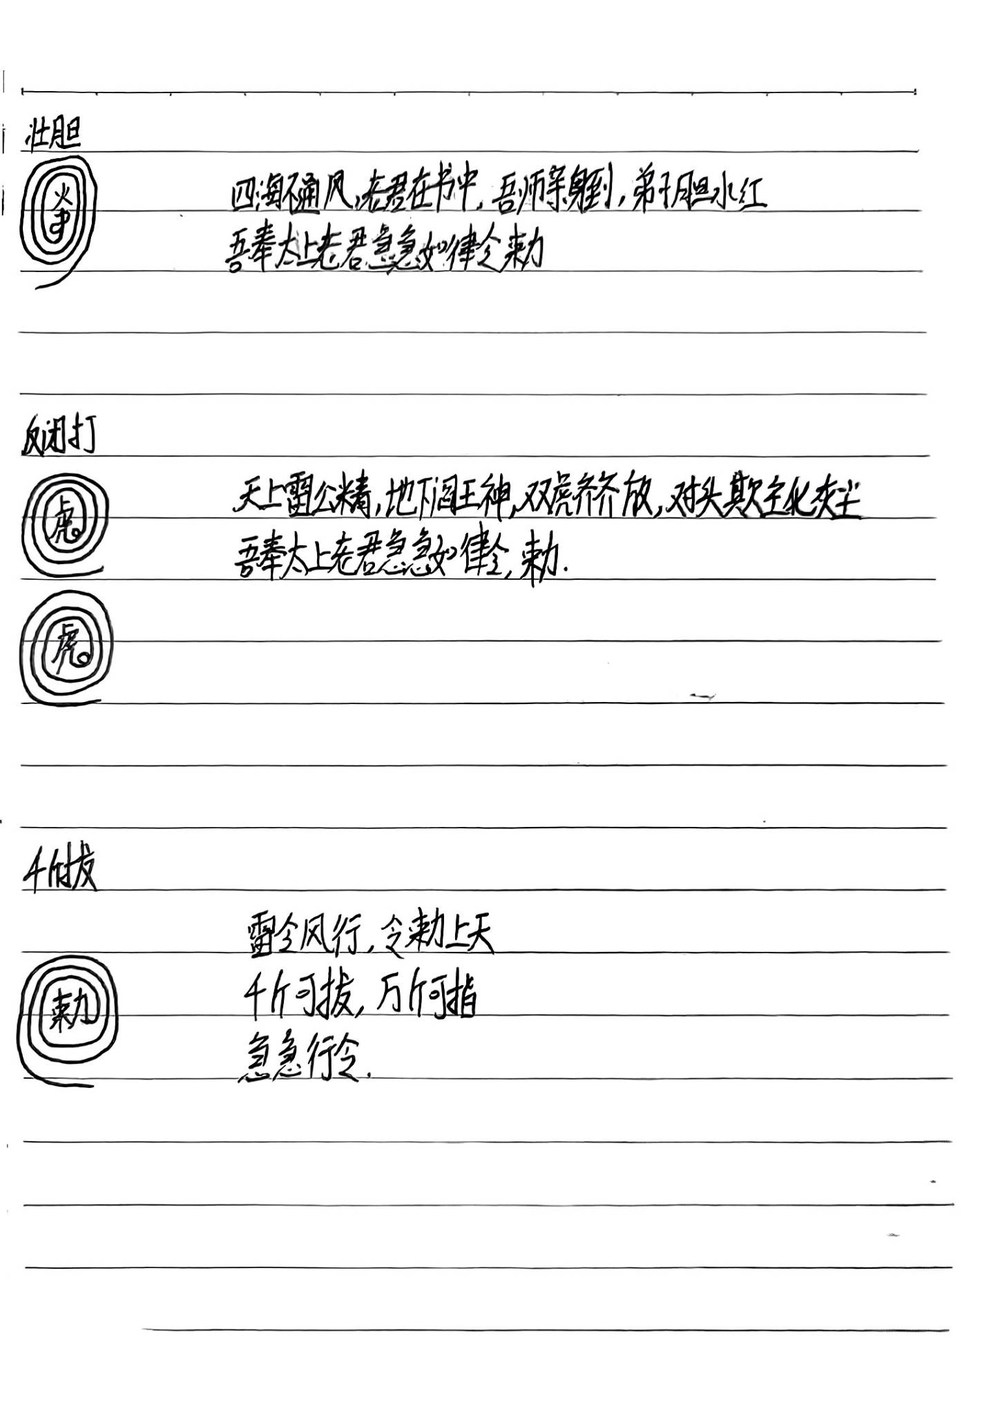 壮胆
四海不通风,老君在书中,吾师亲身到,弟子胆水红
吾奉太上老君急急如律令敕力
反闭打
虎
天上雷公精,地下阎王神,双虎齐齐放,对头欺主化灰尘
吾奉太上老君急急如律令,勅.
虎
千斤拔
雷令风行,令勅上天
勅
千斤可拔,万斤可指
急急行令.